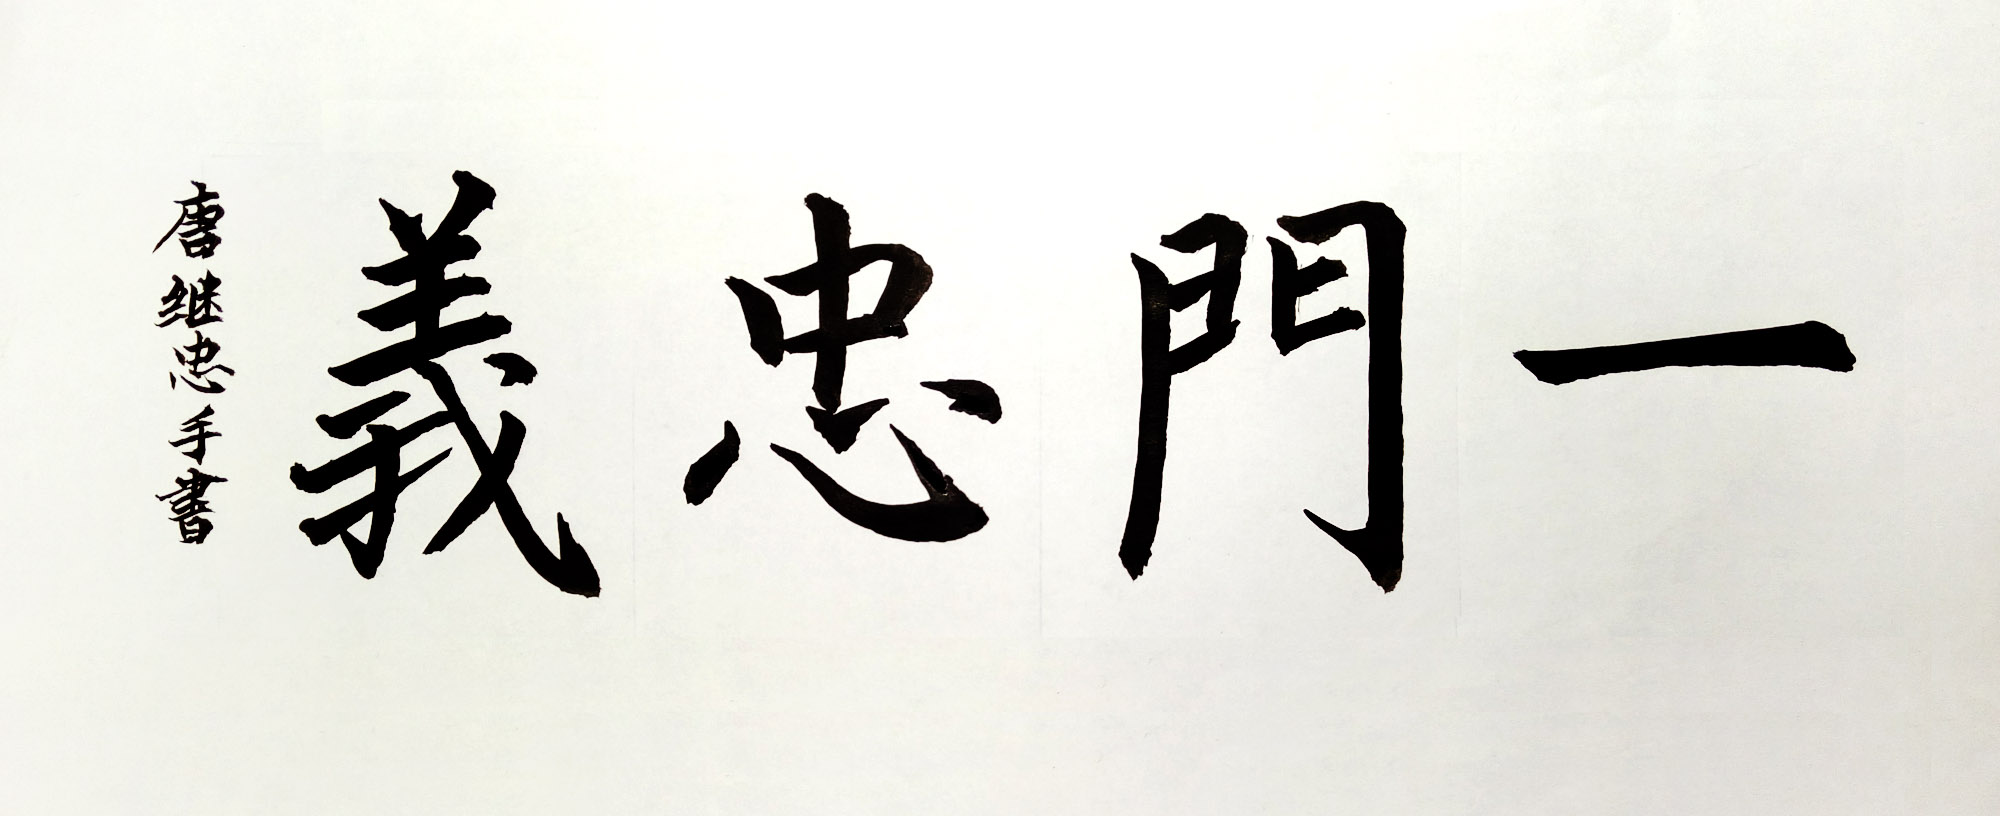 一門忠義
唐继忠手書